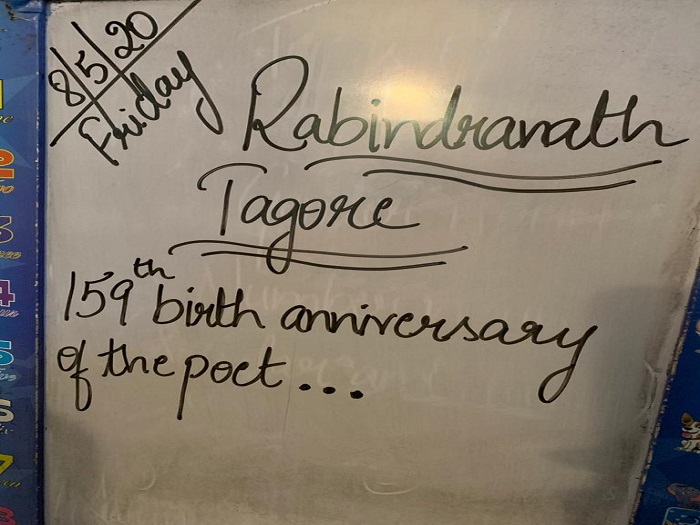 8/5/20
Friday
Rabindranath
Tagore
159th birth anniversary
of the poet...